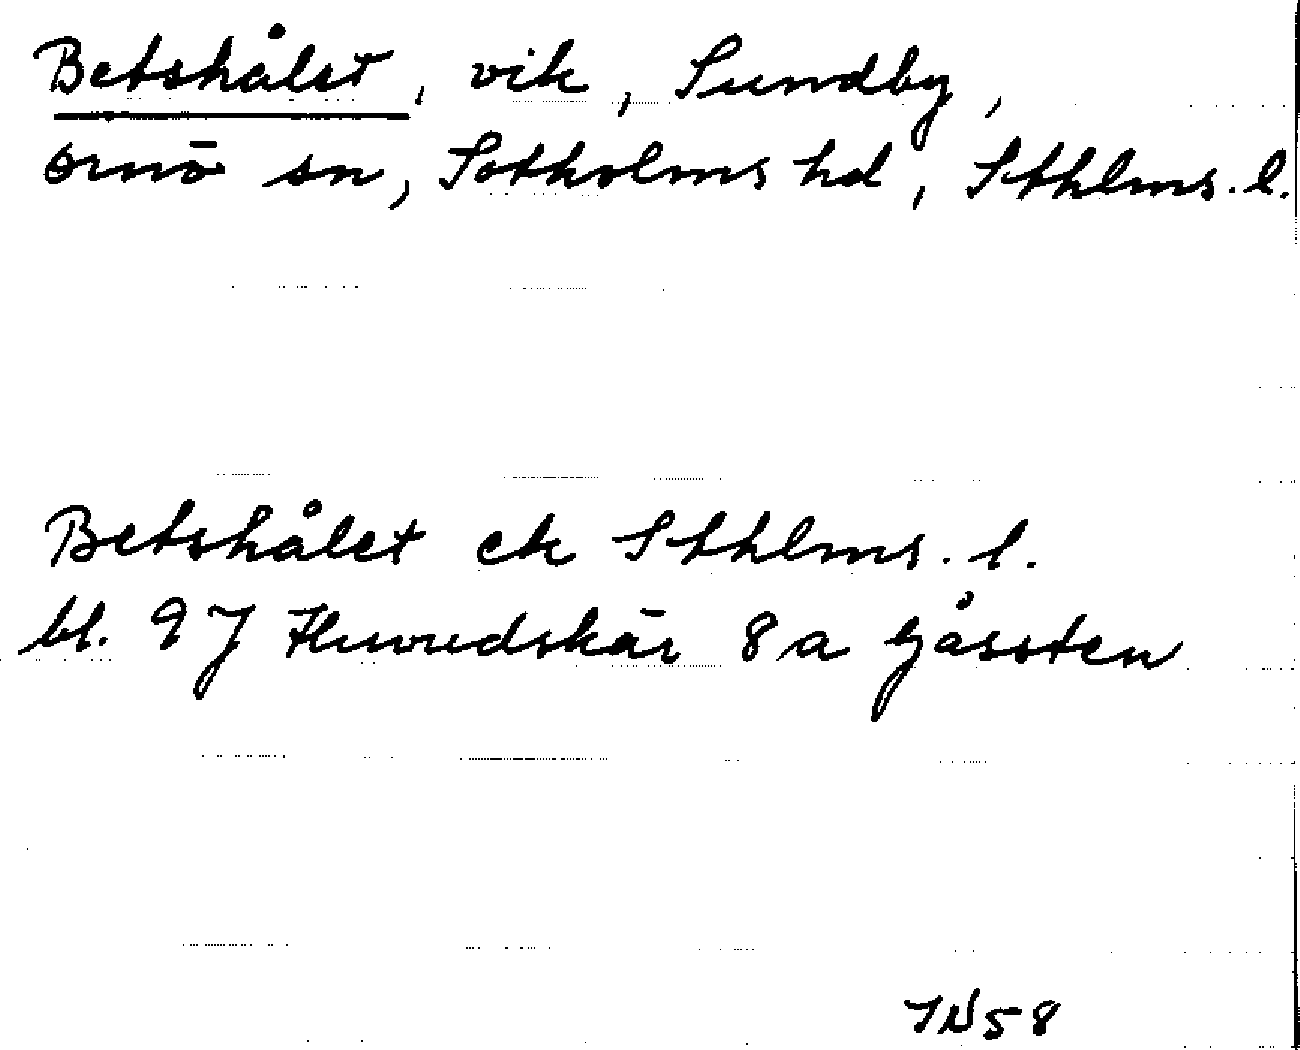 Betshålet, vik, Sundby,
Ornö sn, Sotholms hd, Sthlms. l.
Betshålet ek Sthlms. l.
bl. 9J Huvudskär 8a Gåssten
JN58